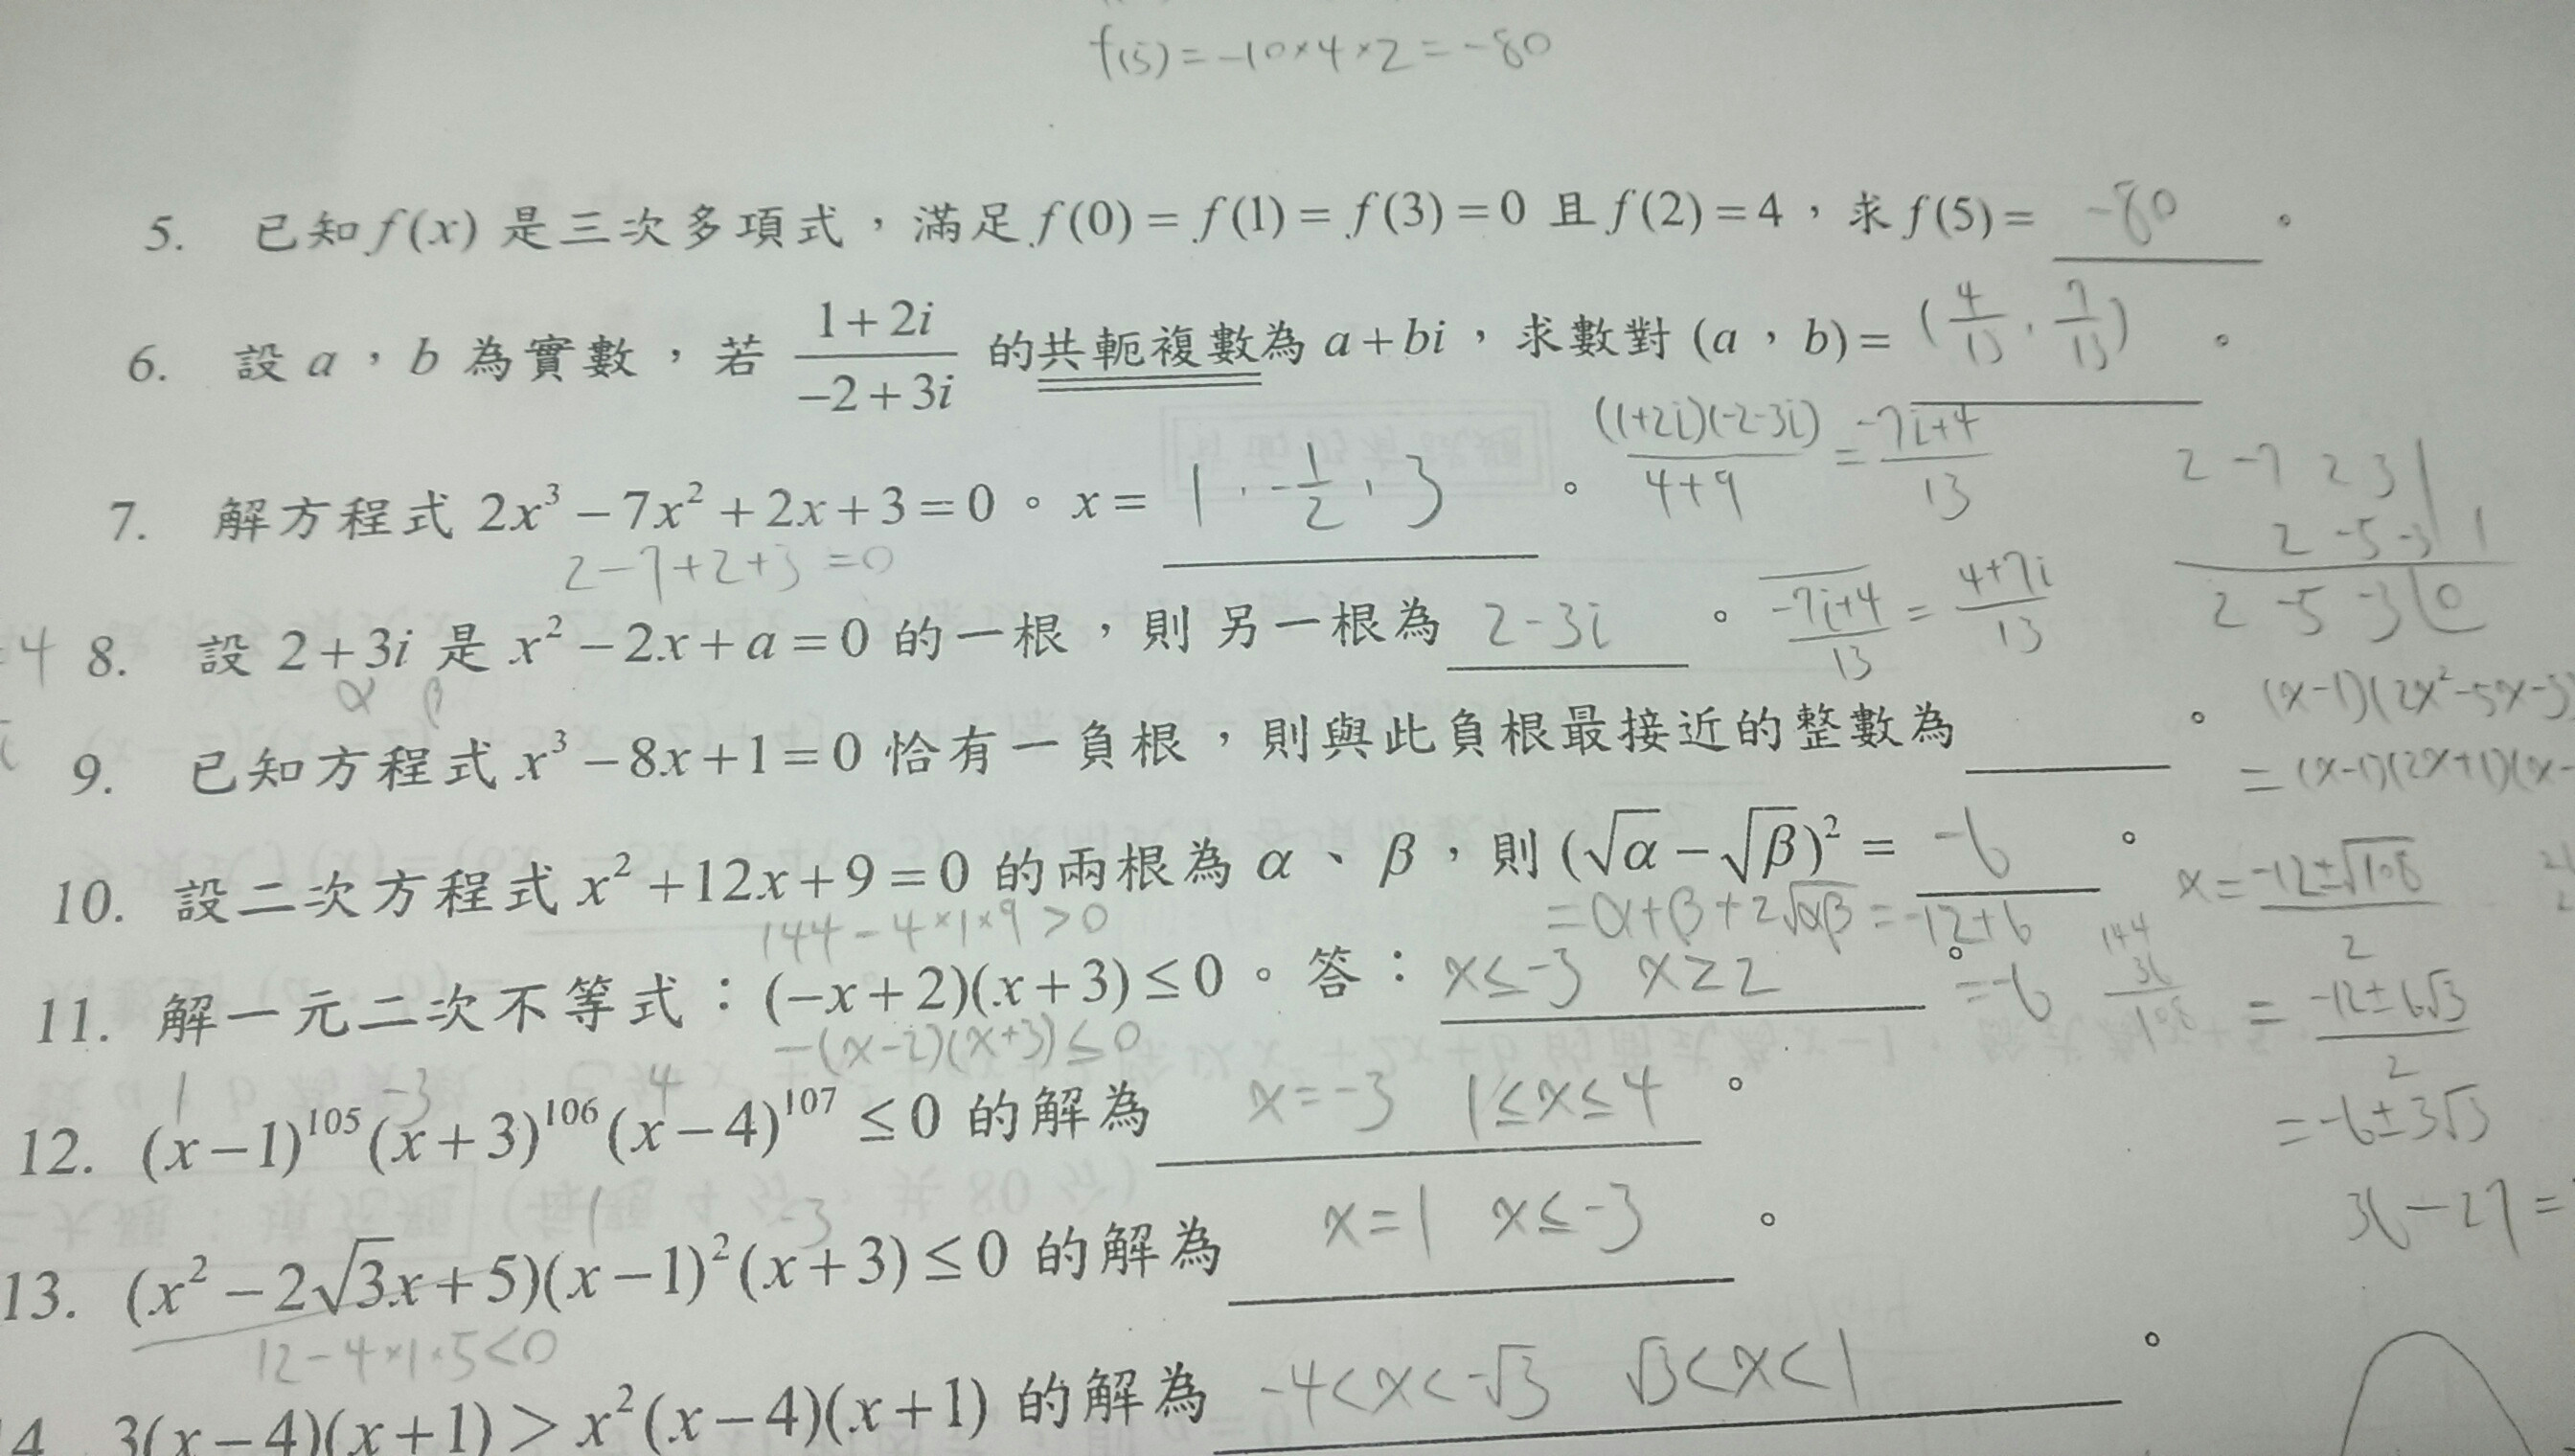 f(5)=-10×4×2=-80
5. 已知 f(x) 是三次多項式，滿足 f(0)=f(1)=f(3)=0 且 f(2)=4，求 f(5)= -80 。
6. 設 a，b 為實數，若 \frac{1+2i}{-2+3i} 的共軛複數為 a+bi，求數對 (a，b)= (\frac{4}{13}, \frac{7}{13}) 。
\frac{(1+2i)(-2-3i)}{4+9} = \frac{-7i+4}{13}
2 -7 2 3
7. 解方程式 2x³-7x²+2x+3=0。x= 1, -\frac{1}{2}, 3 。
2 -5 -3 | 1
2-7+2+3=0
\overline{\frac{-7i+4}{13}} = \frac{4+7i}{13}
2 -5 -3 | 0
=4
8. 設 2+3i 是 x²-2x+a=0 的一根，則另一根為 2-3i 。
α β
(x-1)(2x²-5x-3)
9. 已知方程式 x³-8x+1=0 恰有一負根，則與此負根最接近的整數為 。
=(x-1)(2x+1)(x-
10. 設二次方程式 x²+12x+9=0 的兩根為 α、β，則 (√α-√β)²= -6 。
x=\frac{-12±√108}{2}
144-4×1×9>0
=α+β+2√αβ=-12+6
=-6
144
36
108
=\frac{-12±6√3}{2}
11. 解一元二次不等式：(-x+2)(x+3)≤0。答：x≤-3 x≥2 。
-(x-2)(x+3)≤0
=-6±3√3
1 -3 4
12. (x-1)¹⁰⁵(x+3)¹⁰⁶(x-4)¹⁰⁷≤0 的解為 x=-3 1≤x≤4 。
36-27=
1 -3
13. (x²-2√3x+5)(x-1)²(x+3)≤0 的解為 x=1 x≤-3 。
12-4×1×5<0
4. 3(x-4)(x+1)>x²(x-4)(x+1) 的解為 -4<x<-√3 √3<x<1 。